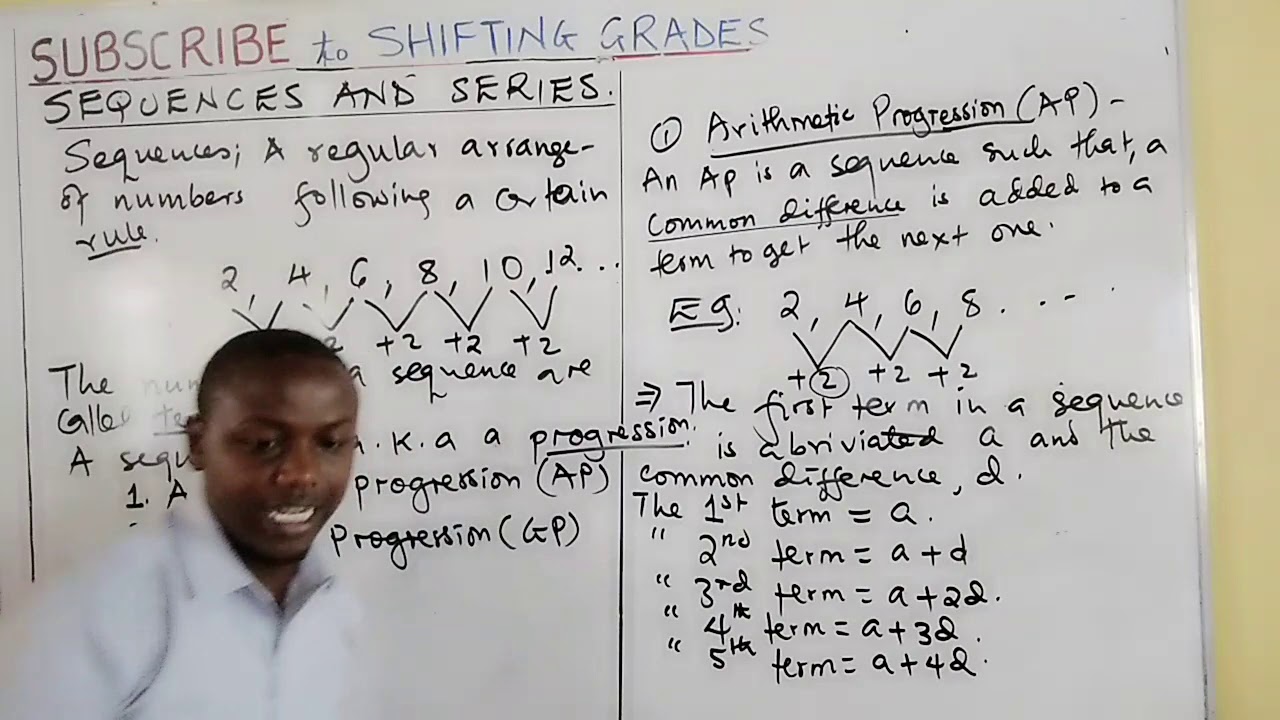 SUBSCRIBE to SHIFTING GRADES
SEQUENCES AND SERIES.
Sequences; A regular arrange-
of numbers following a certain
rule.
2, 4, 6, 8, 10, 12...
+2 +2 +2
The a sequence are
called
A a.k.a a progression.
1. A progression (AP)
Progression (GP)
① Arithmetic Progression (AP) -
An Ap is a sequence such that, a
common difference is added to a
term to get the next one.
Eg: 2, 4, 6, 8. . - .
+2 +2 +2
⇒ The first term in a sequence
is abriviated a and the
common difference, d.
The 1st term = a.
" 2nd term = a + d
" 3rd term = a + 2d.
" 4th term = a + 3d.
" 5th term = a + 4d.